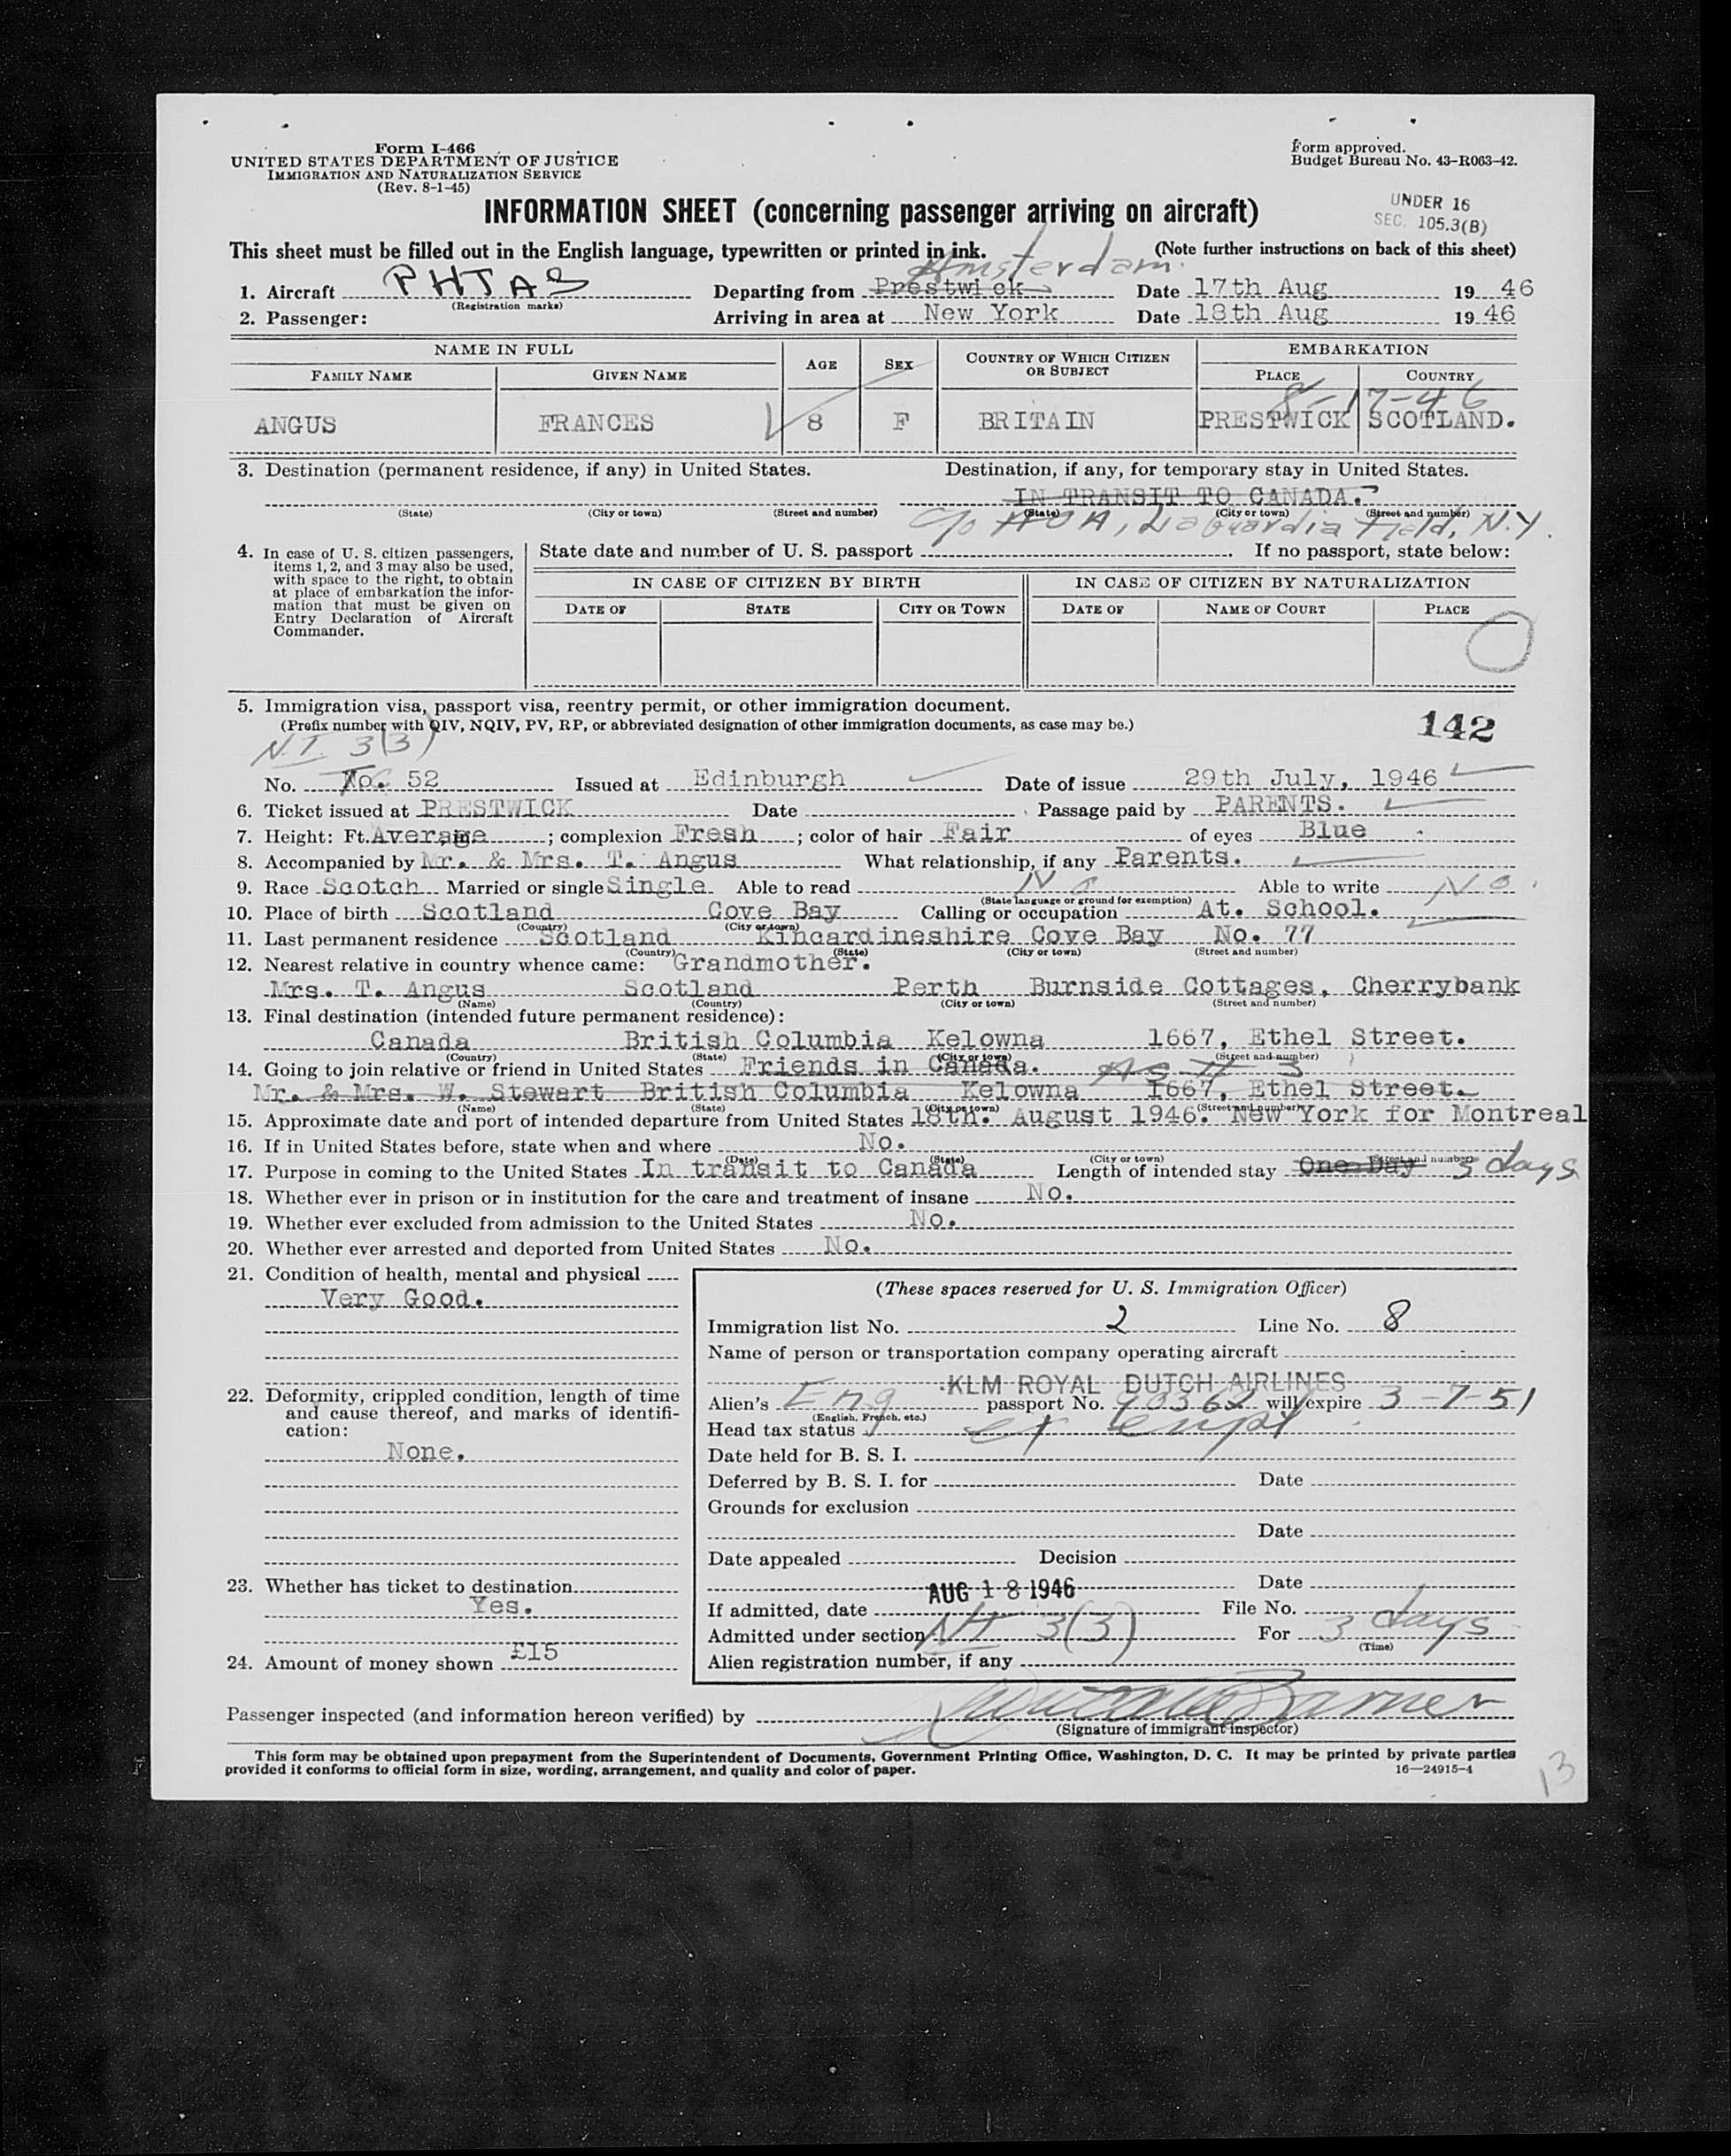 Form I-466
UNITED STATES DEPARTMENT OF JUSTICE
IMMIGRATION AND NATURALIZATION SERVICE
(Rev. 8-1-45)
Form approved.
Budget Bureau No. 43-R063-42.
UNDER 16
SEC. 105.3(B)
INFORMATION SHEET (concerning passenger arriving on aircraft)
This sheet must be filled out in the English language, typewritten or printed in ink. (Note further instructions on back of this sheet)
Amsterdam
1. Aircraft PHTAS Departing from Prestwick Date 17th Aug 19 46
(Registration marks)
2. Passenger: Arriving in area at New York Date 18th Aug 19 46
NAME IN FULL AGE SEX COUNTRY OF WHICH CITIZEN OR SUBJECT EMBARKATION
FAMILY NAME GIVEN NAME PLACE COUNTRY
8-17-46
ANGUS FRANCES 8 F BRITAIN PRESTWICK SCOTLAND.
3. Destination (permanent residence, if any) in United States. Destination, if any, for temporary stay in United States.
IN TRANSIT TO CANADA.
(State) (City or town) (Street and number) (State) (City or town) (Street and number)
c/o AOA, LaGuardia Field, N.Y.
4. In case of U. S. citizen passengers, items 1, 2, and 3 may also be used, with space to the right, to obtain at place of embarkation the information that must be given on Entry Declaration of Aircraft Commander.
State date and number of U. S. passport . If no passport, state below:
IN CASE OF CITIZEN BY BIRTH IN CASE OF CITIZEN BY NATURALIZATION
DATE OF STATE CITY OR TOWN DATE OF NAME OF COURT PLACE
5. Immigration visa, passport visa, reentry permit, or other immigration document.
(Prefix number with QIV, NQIV, PV, RP, or abbreviated designation of other immigration documents, as case may be.)
142
N.I. 3(3)
No. No. 52 Issued at Edinburgh Date of issue 29th July, 1946
6. Ticket issued at PRESTWICK Date Passage paid by PARENTS.
7. Height: Ft. Average ; complexion Fresh ; color of hair Fair of eyes Blue
8. Accompanied by Mr. & Mrs. T. Angus What relationship, if any Parents.
9. Race Scotch Married or single Single Able to read No Able to write No.
(State language or ground for exemption)
10. Place of birth Scotland Cove Bay Calling or occupation At. School.
(Country) (City or town)
11. Last permanent residence Scotland Kincardineshire Cove Bay No. 77
(Country) (State) (City or town) (Street and number)
12. Nearest relative in country whence came: Grandmother.
Mrs. T. Angus Scotland Perth Burnside Cottages, Cherrybank
(Name) (Country) (City or town) (Street and number)
13. Final destination (intended future permanent residence):
Canada British Columbia Kelowna 1667, Ethel Street.
(Country) (State) (City or town) (Street and number)
14. Going to join relative or friend in United States Friends in Canada. As # 3
Mr. & Mrs. W. Stewart British Columbia Kelowna 1667, Ethel Street.
(Name) (State) (City or town) (Street and number)
15. Approximate date and port of intended departure from United States 18th. August 1946. New York for Montreal
16. If in United States before, state when and where No.
(Date) (State) (City or town) (Street and number)
17. Purpose in coming to the United States In transit to Canada Length of intended stay One Day 3 days
18. Whether ever in prison or in institution for the care and treatment of insane No.
19. Whether ever excluded from admission to the United States No.
20. Whether ever arrested and deported from United States No.
21. Condition of health, mental and physical
Very Good.
22. Deformity, crippled condition, length of time and cause thereof, and marks of identification:
None.
23. Whether has ticket to destination
Yes.
24. Amount of money shown £15
(These spaces reserved for U. S. Immigration Officer)
Immigration list No. 2 Line No. 8
Name of person or transportation company operating aircraft
KLM ROYAL DUTCH AIRLINES
Alien's Eng passport No. 90362 will expire 3-7-51
(English, French, etc.)
Head tax status exempt
Date held for B. S. I.
Deferred by B. S. I. for Date
Grounds for exclusion
Date
Date appealed Decision
Date
If admitted, date AUG 18 1946 File No.
Admitted under section NI 3(3) For 3 days
(Time)
Alien registration number, if any
Passenger inspected (and information hereon verified) by
(Signature of immigrant inspector)
This form may be obtained upon prepayment from the Superintendent of Documents, Government Printing Office, Washington, D. C. It may be printed by private parties
provided it conforms to official form in size, wording, arrangement, and quality and color of paper. 16—24915-4
13